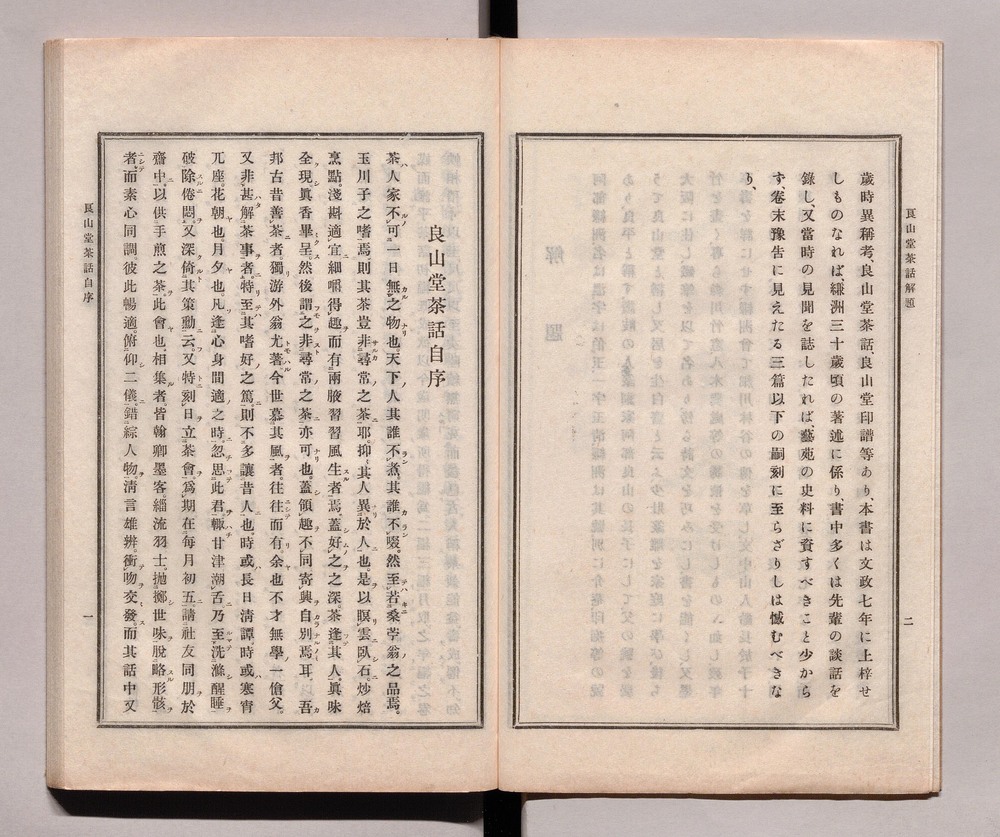 良山堂茶話解題
二
歲時異稱考、良山堂茶話、良山堂印譜等あり、本書は文政七年に上梓せ
しものなれば、縑洲三十歲頃の著述に係り、書中多くは先輩の談話を
錄し、又當時の見聞を誌したれば、藝苑の史料に資すべきこと少から
ず、卷末豫告に見えたる三篇以下の嗣刻に至らざりしは憾むべきな
り、
良山堂茶話自序
茶人家不可一日無之物也天下人其誰不煮其誰不啜然至若桑苧翁之品焉。
玉川子之嗜焉則其茶豈非尋常之茶耶。抑其人異於人也。是以瞑雲臥石。炒焙
烹點。淺斟適宜細嚼得趣而有兩腋習習風生者焉蓋好之之深。茶逢其人。眞味
全現。眞香畢呈然後謂之非尋常之茶亦可也。蓋領趣不同寄興自別焉耳。吾
邦古昔善茶者。獨游外翁尤著。今世慕其風者。往往而有余也不才無學一傖父。
又非甚解茶事者。特至其嗜好之篤則不多讓昔人也。時或長日淸譚時或寒宵
兀座。花朝也。月夕也。凡逢心身間適之時。忽思此君。輒甘津潮舌乃至洗滌醒睡
破除倦悶。又深倚其策勳云。又特刻日立茶會。爲期在每月初五。請社友同朋於
齋中。以供手煎之茶。此會也。相集者皆翰卿墨客緇流羽士。拋擲世味脫略形骸
者。而素心同調彼此暢適。俯仰二儀。錯綜人物。淸言雄辨。衝吻交發。而其話中又
良山堂茶話自序
一